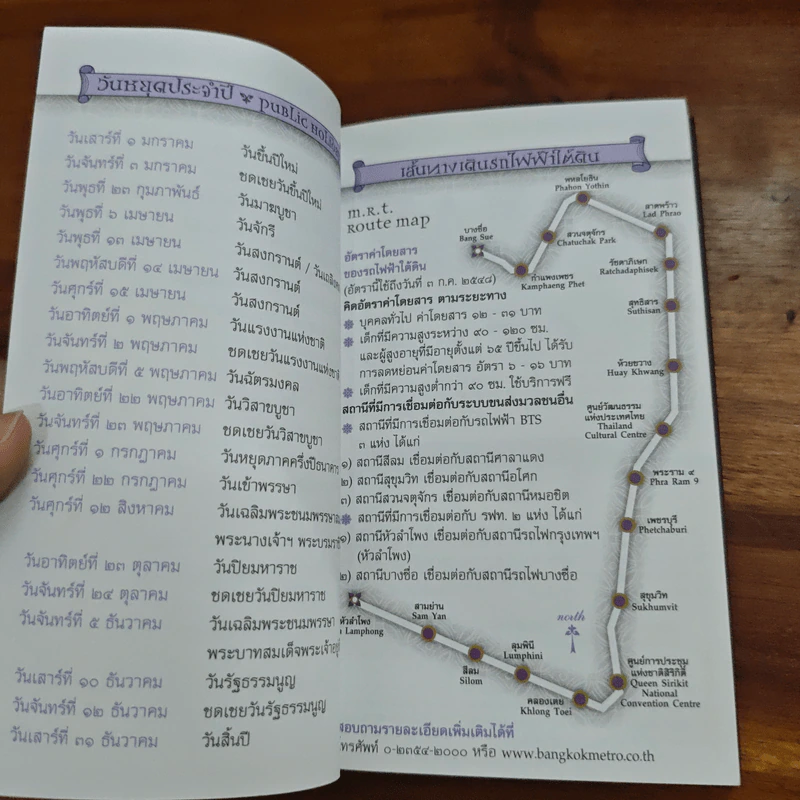 วันหยุดประจำปี ❧ PUBLIC
วันเสาร์ที่ ๑ มกราคม วันขึ้นปีใหม่
วันจันทร์ที่ ๓ มกราคม ชดเชยวันขึ้นปีใหม่
วันพุธที่ ๒๓ กุมภาพันธ์ วันมาฆบูชา
วันพุธที่ ๖ เมษายน วันจักรี
วันพุธที่ ๑๓ เมษายน วันสงกรานต์ /
วันพฤหัสบดีที่ ๑๔ เมษายน วันสงกรานต์
วันศุกร์ที่ ๑๕ เมษายน วันสงกรานต์
วันอาทิตย์ที่ ๑ พฤษภาคม วันแรงงานแห่งชาติ
วันจันทร์ที่ ๒ พฤษภาคม ชดเชยวันแรงงานแห่งชาติ
วันพฤหัสบดีที่ ๕ พฤษภาคม วันฉัตรมงคล
วันอาทิตย์ที่ ๒๒ พฤษภาคม วันวิสาขบูชา
วันจันทร์ที่ ๒๓ พฤษภาคม ชดเชยวันวิสาขบูชา
วันศุกร์ที่ ๑ กรกฎาคม วันหยุดภาคครึ่งปีธนาคาร
วันศุกร์ที่ ๒๒ กรกฎาคม วันเข้าพรรษา
วันศุกร์ที่ ๑๒ สิงหาคม วันเฉลิมพระชนมพรรษา
พระนางเจ้าฯ พระบรมรา
วันอาทิตย์ที่ ๒๓ ตุลาคม วันปิยมหาราช
วันจันทร์ที่ ๒๔ ตุลาคม ชดเชยวันปิยมหาราช
วันจันทร์ที่ ๕ ธันวาคม วันเฉลิมพระชนมพรรษา
พระบาทสมเด็จพระเจ้าอยู่
วันเสาร์ที่ ๑๐ ธันวาคม วันรัฐธรรมนูญ
วันจันทร์ที่ ๑๒ ธันวาคม ชดเชยวันรัฐธรรมนูญ
วันเสาร์ที่ ๓๑ ธันวาคม วันสิ้นปี
เส้นทางเดินรถไฟฟ้าใต้ดิน
M.R.T.
ROUTE MAP
อัตราค่าโดยสาร
ของรถไฟฟ้าใต้ดิน
(อัตรานี้ใช้ถึงวันที่ ๓ ก.ค. ๒๕๔๘)
คิดอัตราค่าโดยสาร ตามระยะทาง
บุคคลทั่วไป ค่าโดยสาร ๑๒ - ๓๑ บาท
เด็กที่มีความสูงระหว่าง ๙๐ - ๑๒๐ ซม.
และผู้สูงอายุที่มีอายุตั้งแต่ ๖๕ ปีขึ้นไป ได้รับ
การลดหย่อนค่าโดยสาร อัตรา ๖ - ๑๖ บาท
เด็กที่มีความสูงต่ำกว่า ๙๐ ซม. ใช้บริการฟรี
สถานีที่มีการเชื่อมต่อกับระบบขนส่งมวลชนอื่น
สถานีที่มีการเชื่อมต่อกับรถไฟฟ้า BTS
๓ แห่ง ได้แก่
๑) สถานีสีลม เชื่อมต่อกับสถานีศาลาแดง
๒) สถานีสุขุมวิท เชื่อมต่อกับสถานีอโศก
๓) สถานีสวนจตุจักร เชื่อมต่อกับสถานีหมอชิต
สถานีที่มีการเชื่อมต่อกับ รฟท. ๒ แห่ง ได้แก่
๑) สถานีหัวลำโพง เชื่อมต่อกับสถานีรถไฟกรุงเทพฯ
(หัวลำโพง)
๒) สถานีบางซื่อ เชื่อมต่อกับสถานีรถไฟบางซื่อ
บางซื่อ
Bang Sue
กำแพงเพชร
Kamphaeng Phet
สวนจตุจักร
Chatuchak Park
พหลโยธิน
Phahon Yothin
ลาดพร้าว
Lad Phrao
รัชดาภิเษก
Ratchadaphisek
สุทธิสาร
Suthisan
ห้วยขวาง
Huay Khwang
ศูนย์วัฒนธรรม
แห่งประเทศไทย
Thailand
Cultural Centre
พระราม ๙
Phra Ram 9
เพชรบุรี
Phetchaburi
สุขุมวิท
Sukhumvit
ศูนย์การประชุม
แห่งชาติสิริกิติ์
Queen Sirikit
National
Convention Centre
คลองเตย
Khlong Toei
ลุมพินี
Lumphini
สีลม
Silom
สามย่าน
Sam Yan
หัวลำโพง
Lamphong
north
สอบถามรายละเอียดเพิ่มเติมได้ที่
ทรศัพท์ ๐-๒๓๕๔-๒๐๐๐ หรือ www.bangkokmetro.co.th